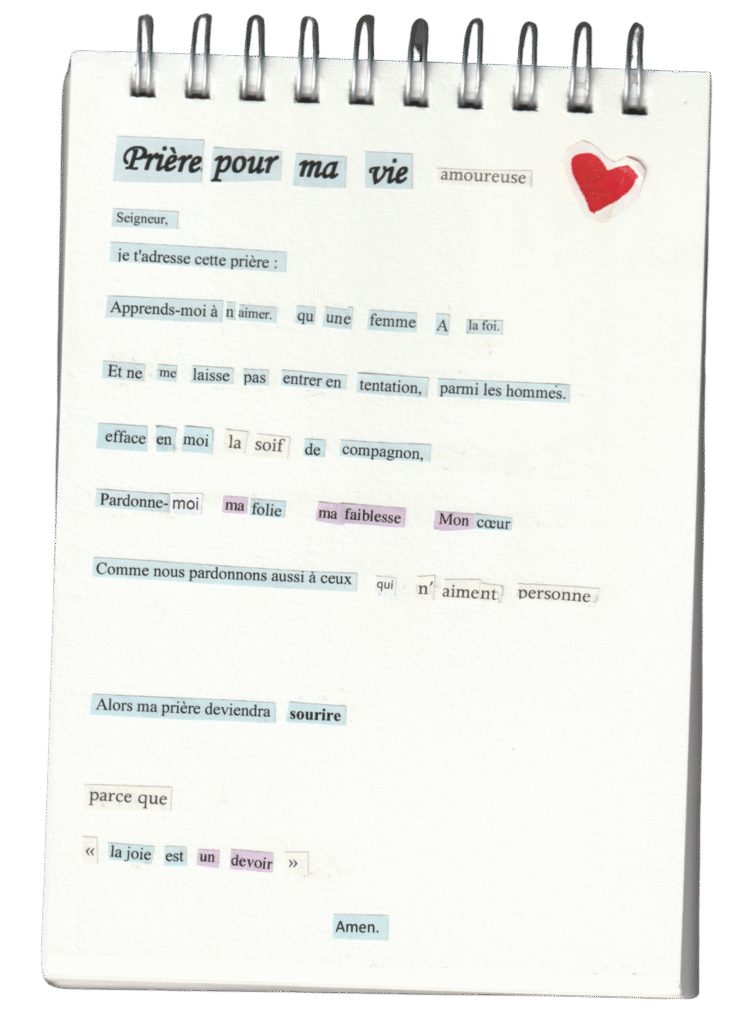 Prière pour ma vie amoureuse
Seigneur,
je t'adresse cette prière :
Apprends-moi à n aimer. qu une femme A la foi.
Et ne me laisse pas entrer en tentation, parmi les hommes.
efface en moi la soif de compagnon,
Pardonne-moi ma folie ma faiblesse Mon cœur
Comme nous pardonnons aussi à ceux qui n' aiment personne
Alors ma prière deviendra sourire
parce que
« la joie est un devoir »
Amen.